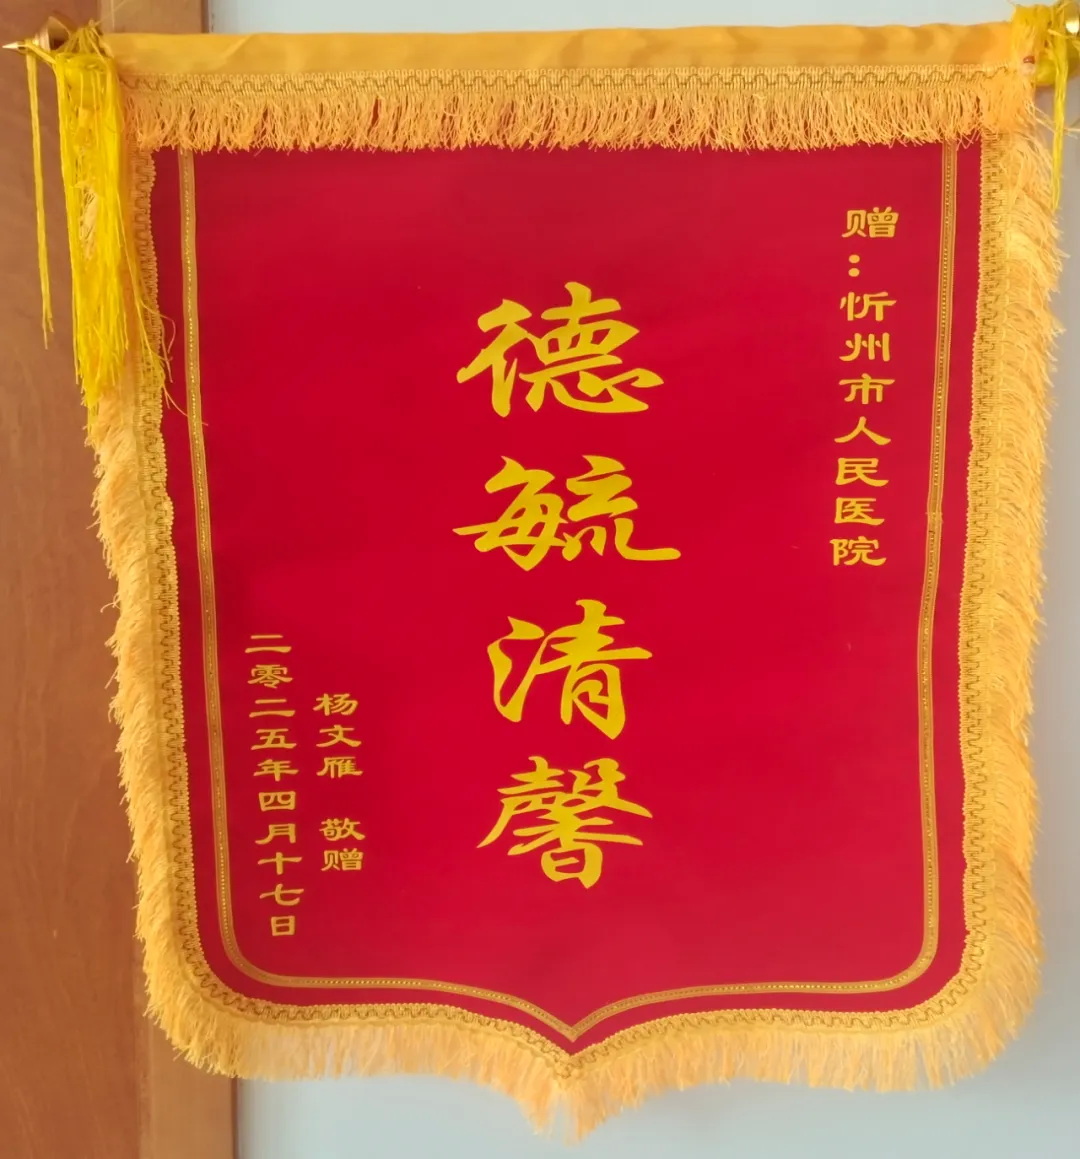 赠：忻州市人民医院
德毓清馨
杨文雁 敬赠
二零二五年四月十七日